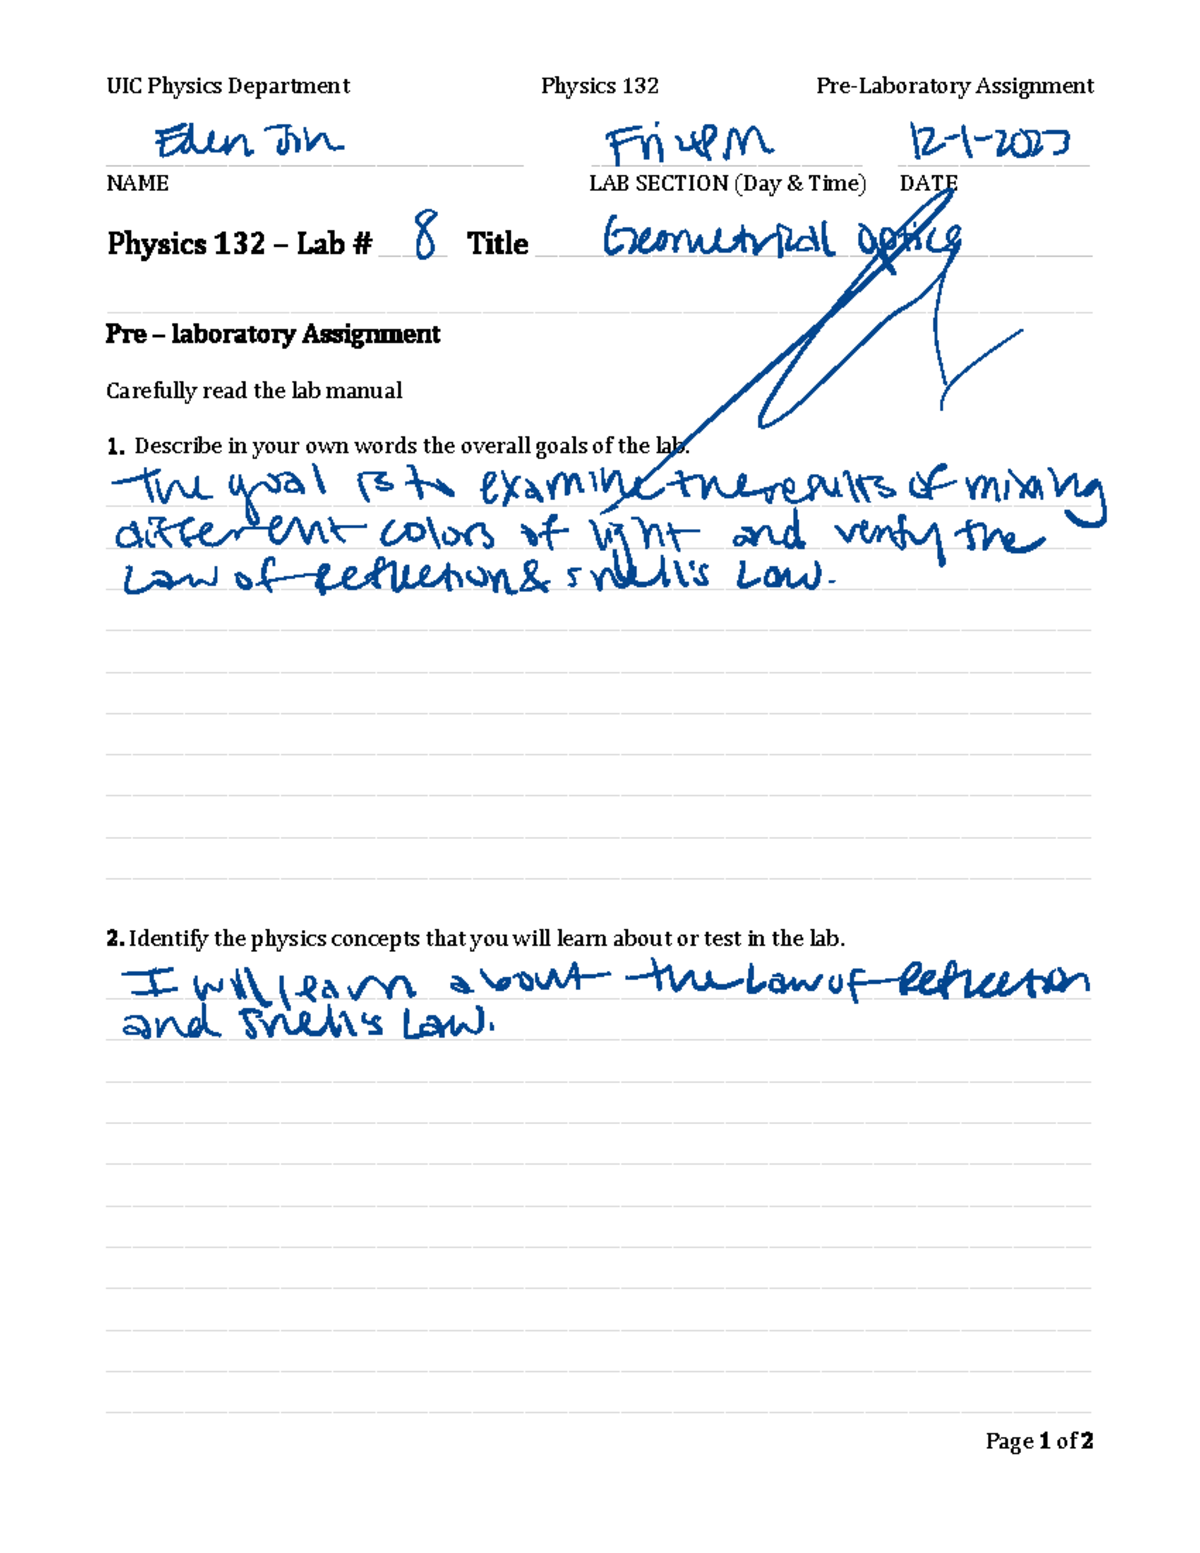 UIC Physics Department Physics 132 Pre-Laboratory Assignment
Eden Jin Fri 4PM 12-1-2023
NAME LAB SECTION (Day & Time) DATE
Physics 132 – Lab # 8 Title Geometrical Optics
Pre – laboratory Assignment
Carefully read the lab manual
1. Describe in your own words the overall goals of the lab.
The goal is to examine the results of mixing
different colors of light and verify the
Law of Reflection & Snell's Law.
2. Identify the physics concepts that you will learn about or test in the lab.
I will learn about the Law of Reflection
and Snell's Law.
Page 1 of 2